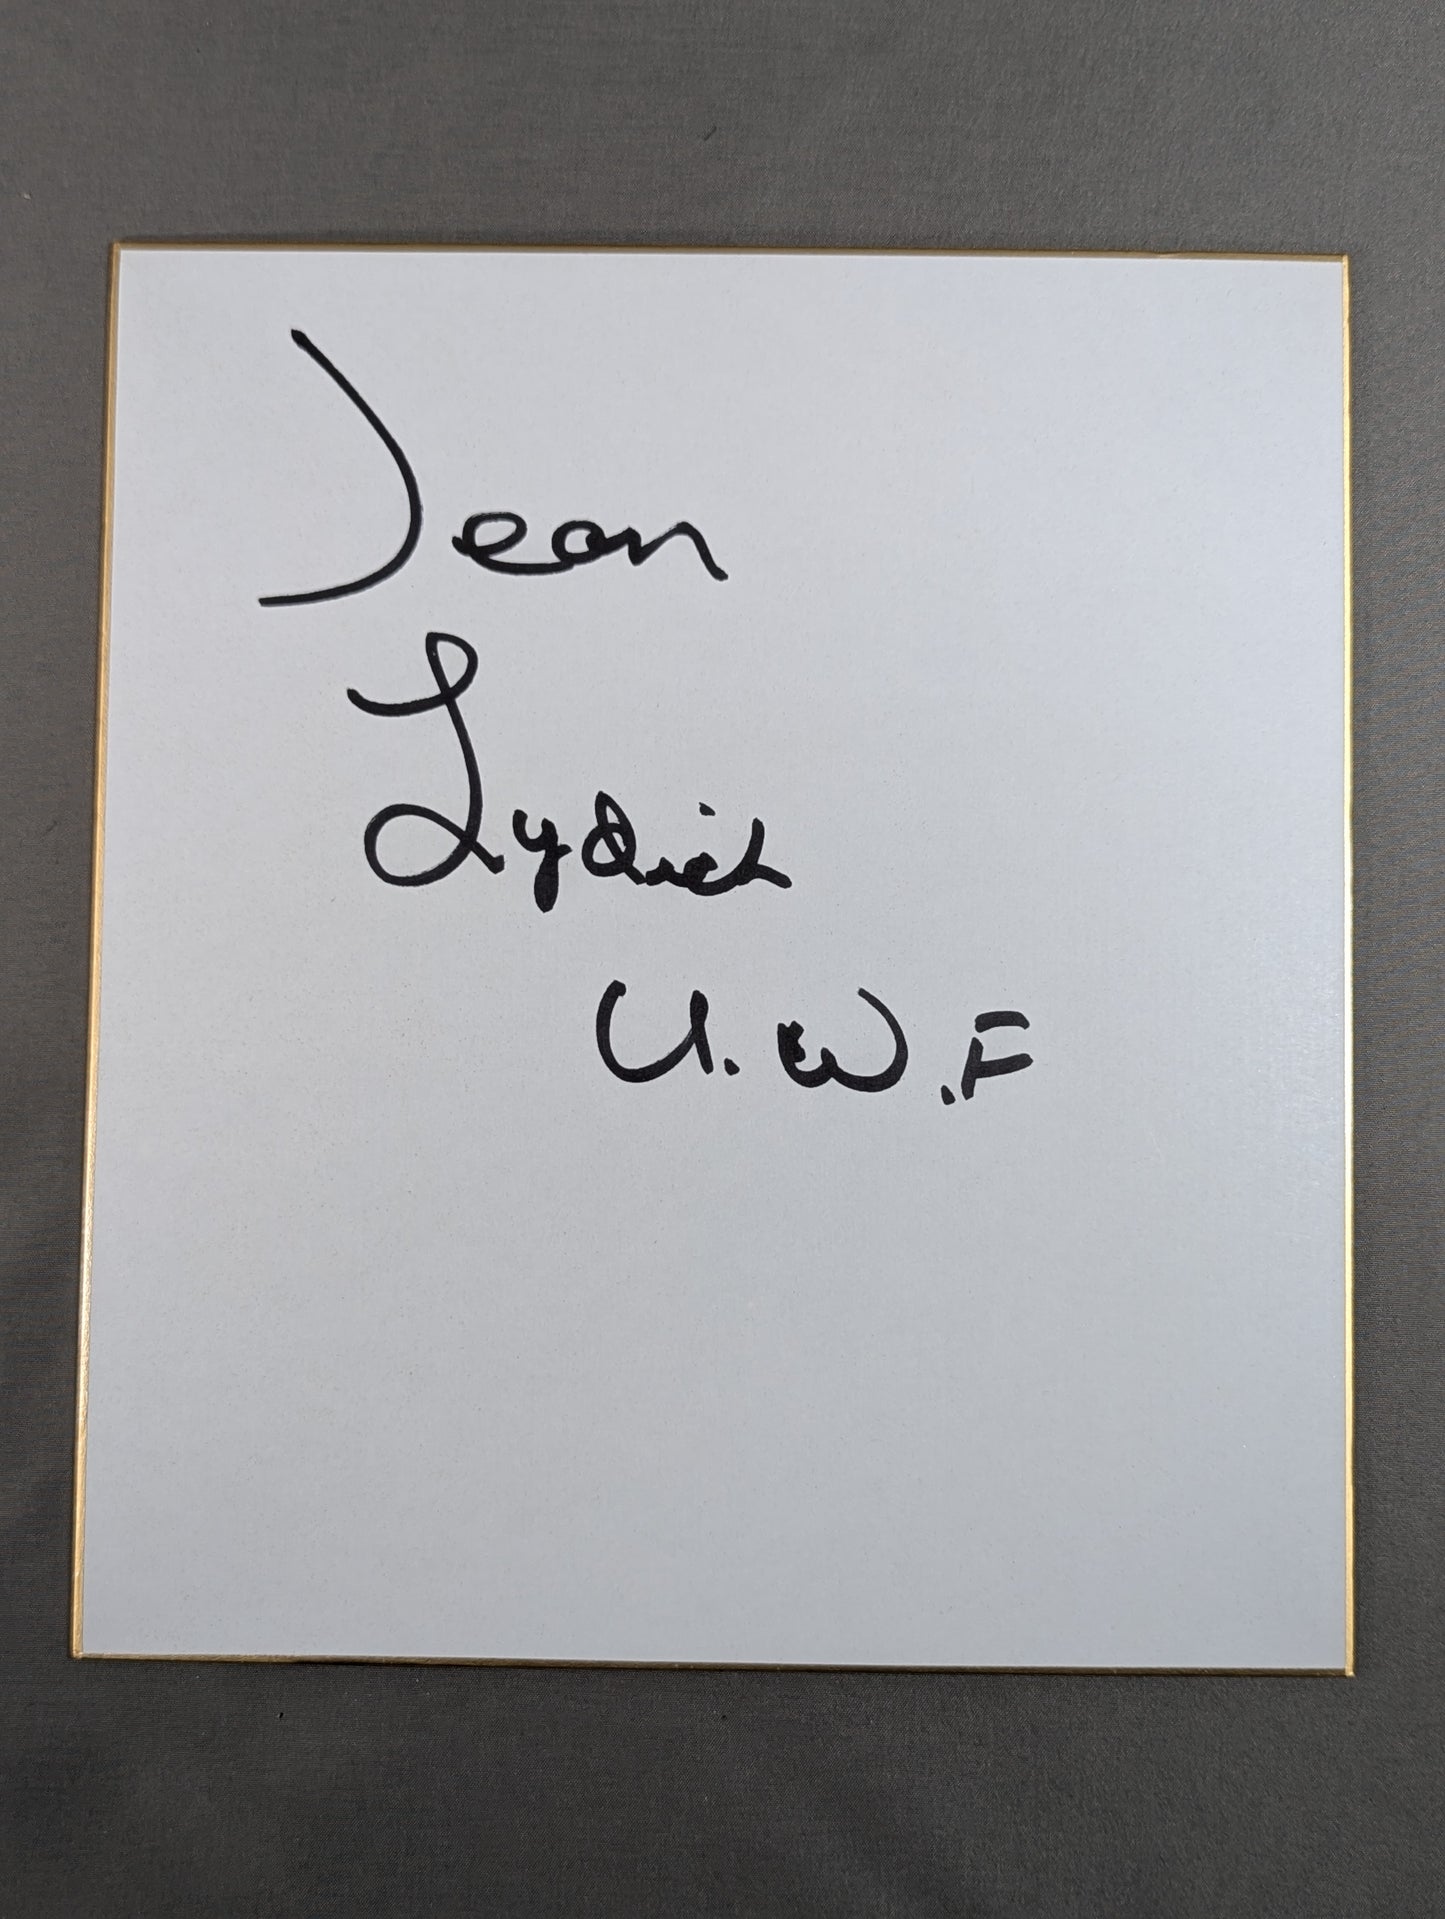 Jean
Lydick
U.W.F